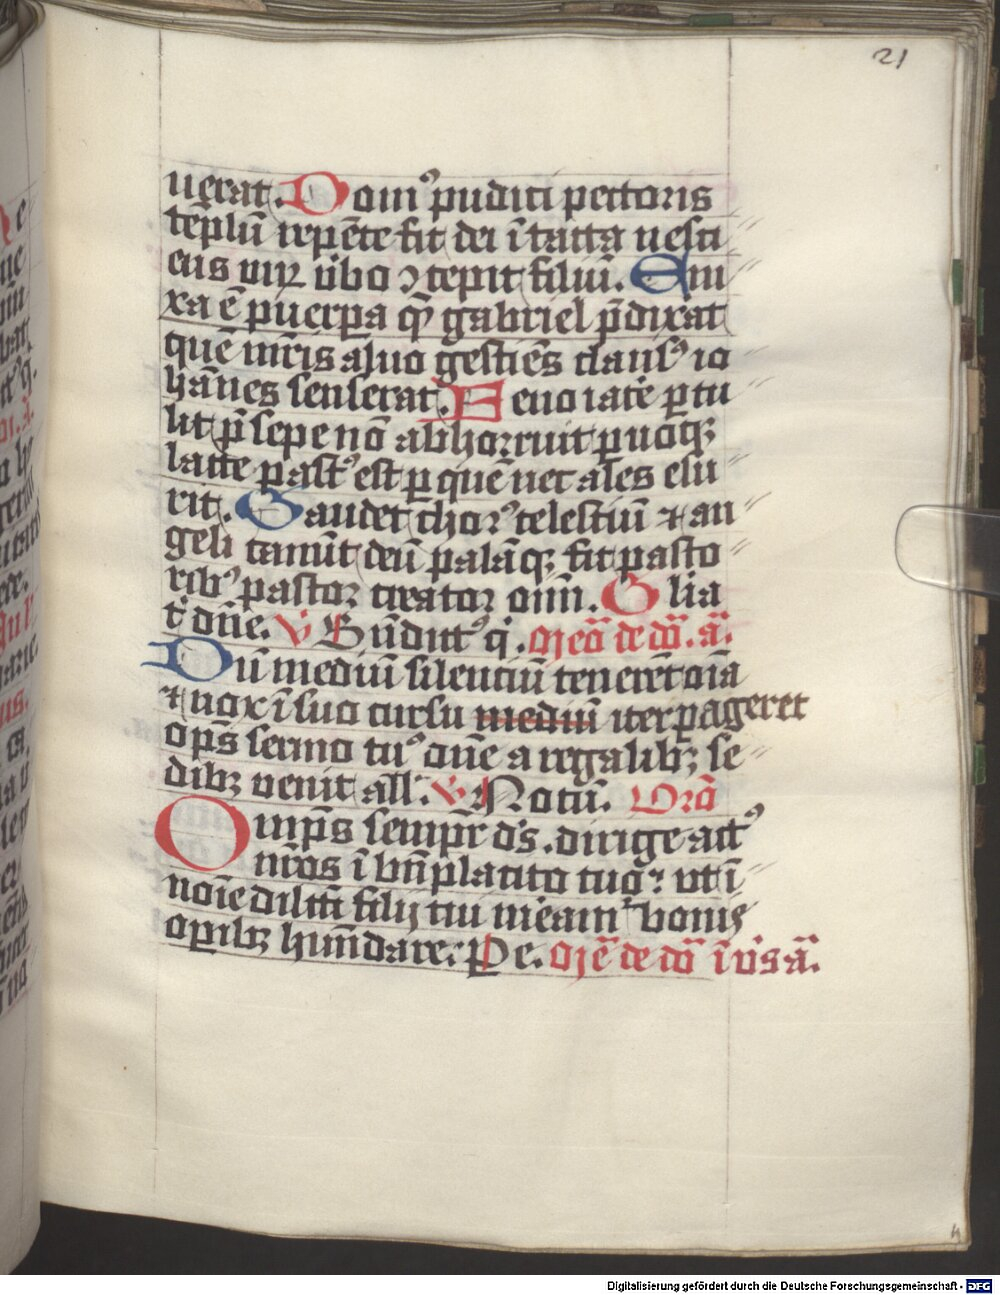 21
uerat. Domꝰ pudici pectoris
tēplū repēte fit dei ītacta nesci
ens virꝝ v̇bo ꝯcepit filiū. Eni
xa ē puerpa qm̄ gabriel p̄dixat
quē mr̄is aluo gestiēs clausꝰ io
hānes senserat. Feno iac̄e ꝑtu
lit p̄sepe nō abhorruit ꝑuoqꝫ
lacte pastꝰ est ꝑ quē nec ales esu
rit. Gaudet chorꝰ celestiū ⁊ an
geli canūt deū palāqꝫ fit pasto
ribꝰ pastor creator oīm. Glia
t̄ dn̄e. v̇ Bn̄dictꝰ q̇.
Dū mediū silenciū tenerēt oīa
⁊ nox ī suo cursu mediū iter ꝑageret
op̄s sermo tuꝰ dn̄e a regalibꝫ se
dibꝫ venit all. v̇ Notū. Orō
Omp̄s semp̄r ds̄. dirige actꝰ
nr̄os ī bn̄placito tuo. vt ī
noīe dilcti filij tui meam̄ bonis
oꝑibꝫ hūndare. Pe.
h
Digitalisierung gefördert durch die Deutsche Forschungsgemeinschaft - DFG